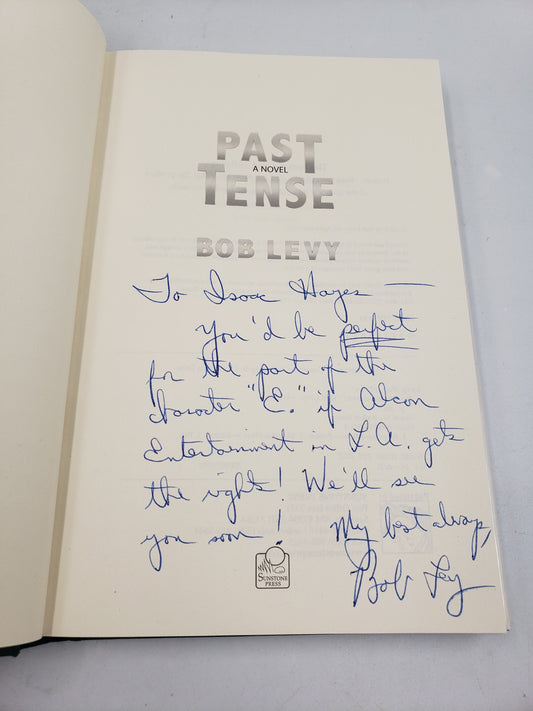 PAST
A NOVEL
TENSE
BOB LEVY
To Isaac Hayes —
You'd be perfect
for the part of the
character "E." if Alcon
Entertainment in L.A. gets
the rights! We'll see
you soon!
My best always,
Bob Levy
SUNSTONE
PRESS